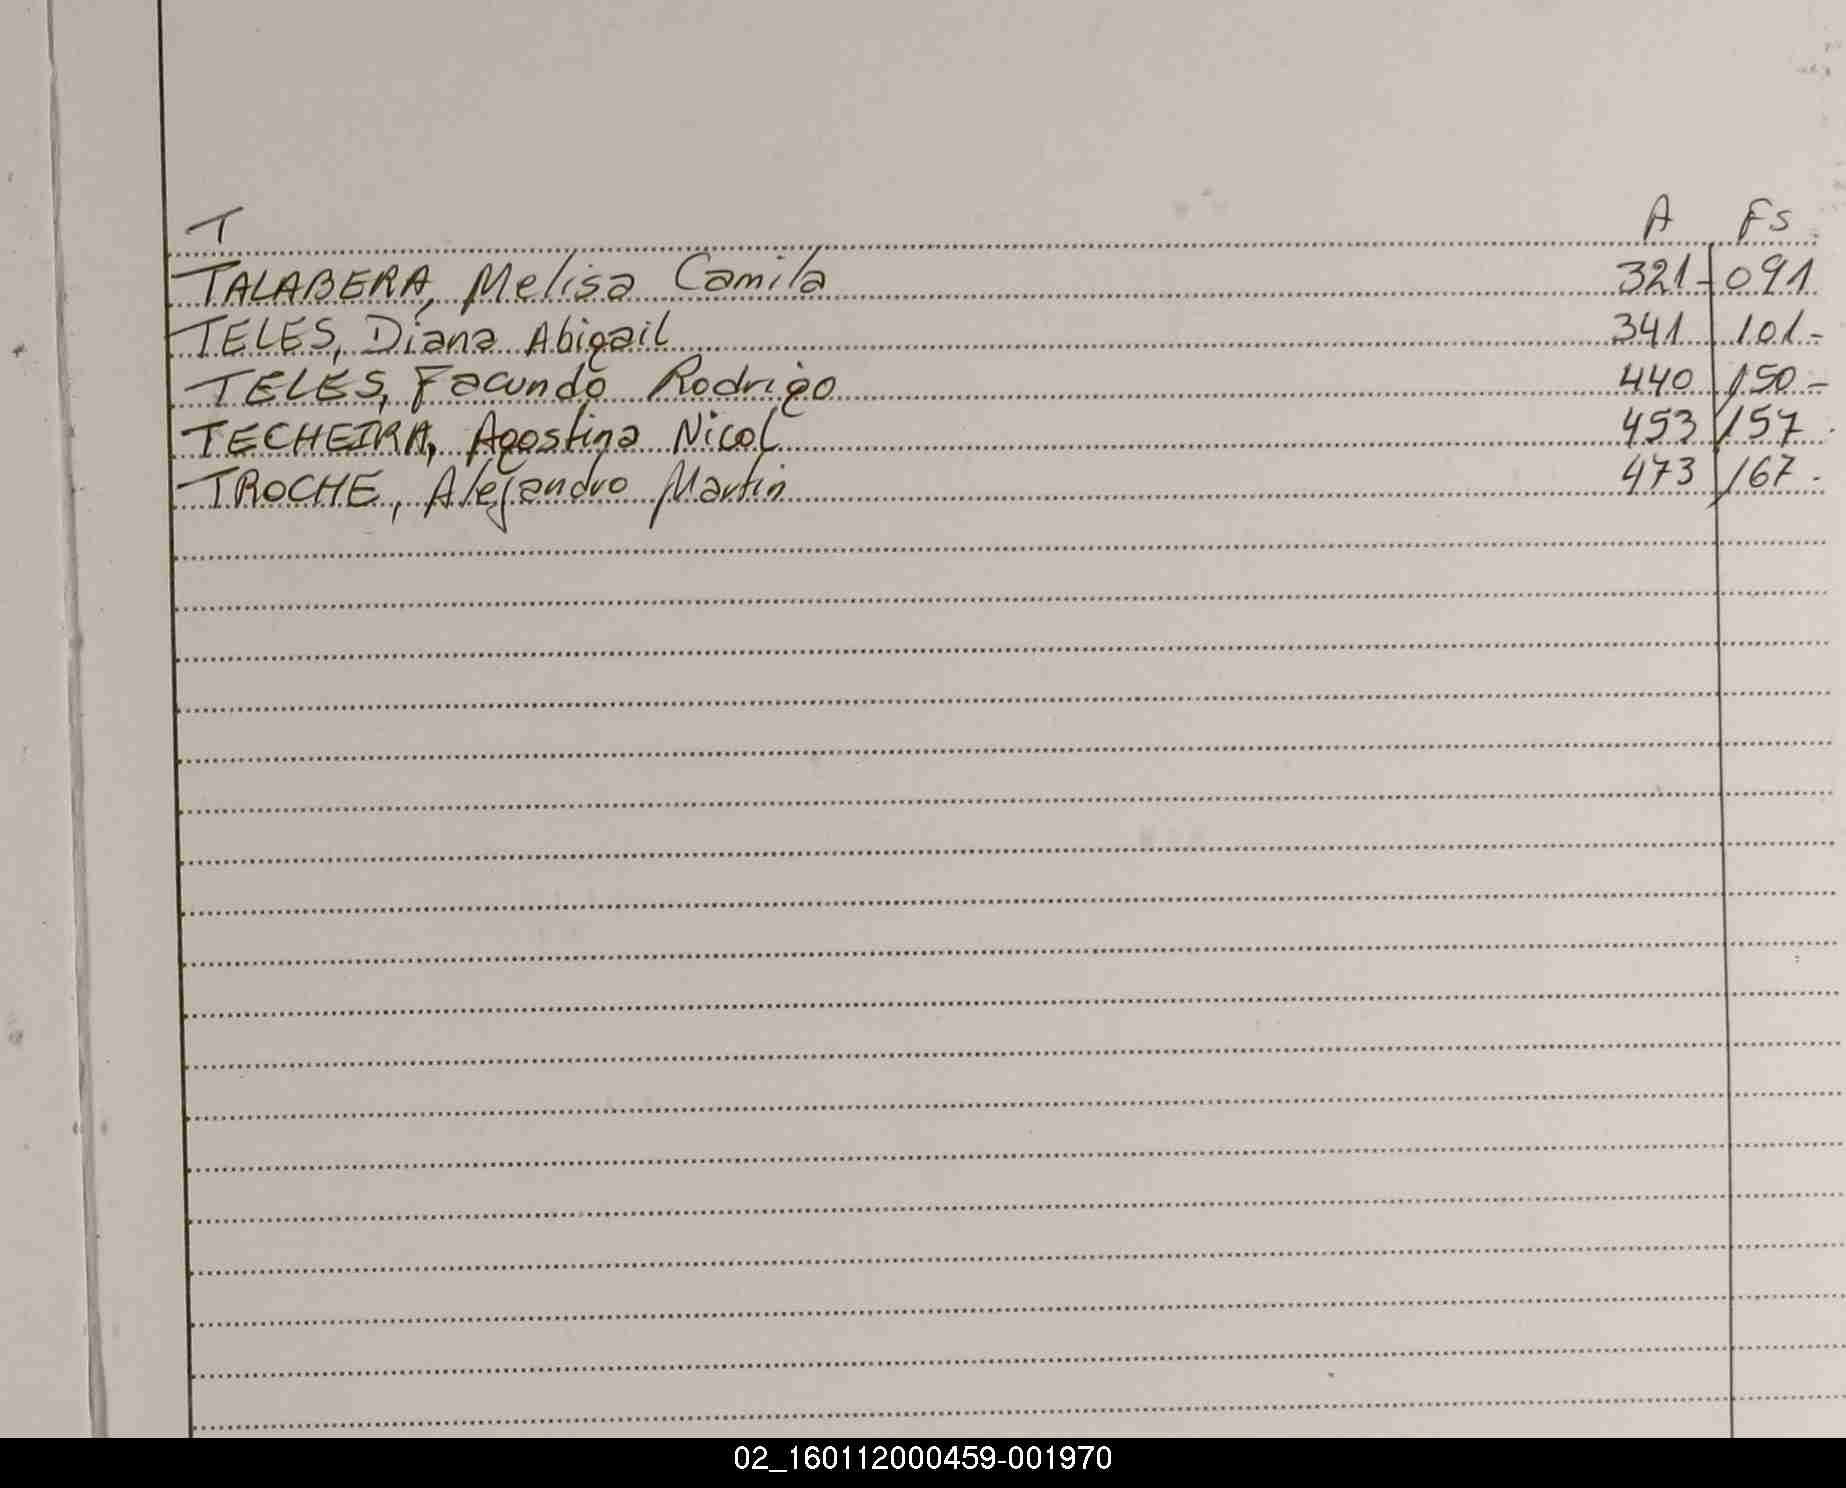 T A Fs
TALABERA, Melisa Camila 321-091
TELES, Diana Abigail 341 101-
TELES, Facundo Rodrigo 440 150-
TECHEIRA, Agostina Nicol 453/157.
TROCHE, Alejandro Martin 473/167.
02_160112000459-001970